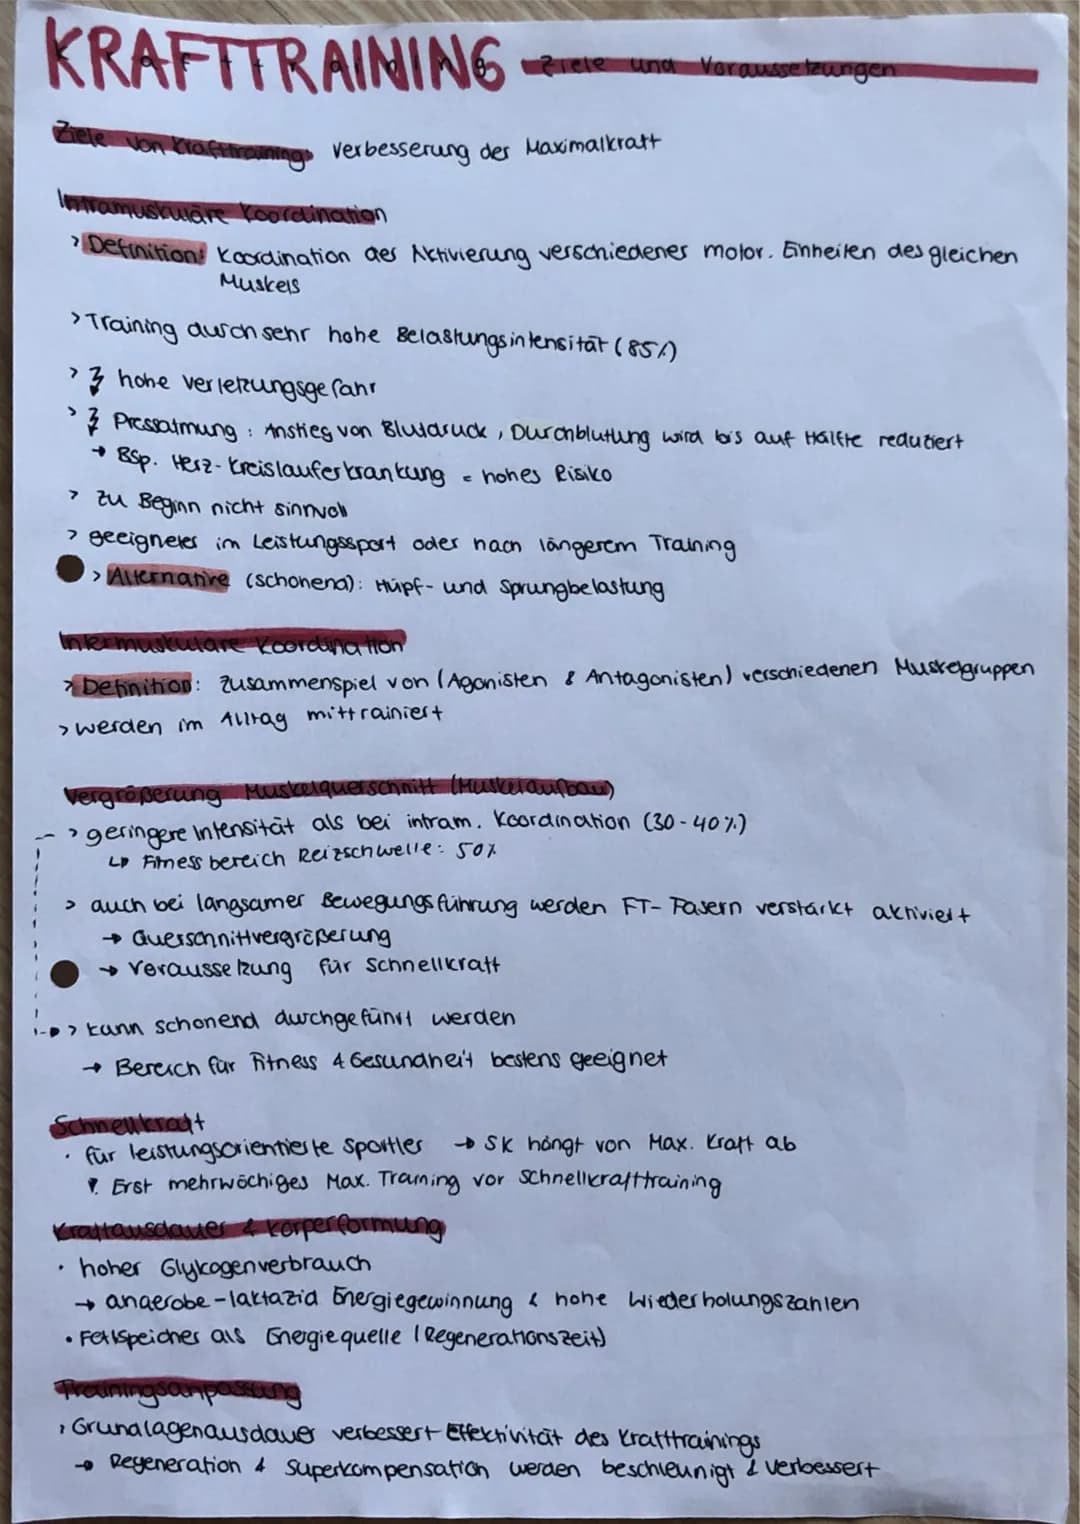 KRAFTTRAINING Ziele und Voraussetzungen
Ziele von Krafttraining: Verbesserung der Maximalkraft
Intramuskuläre Koordination
> Definition: Koordination der Aktivierung verschiedener motor. Einheiten des gleichen
Muskels
> Training durch sehr hohe Belastungsintensität (85%)
> hohe Verletzungsgefahr
> Pressatmung: Anstieg von Blutdruck, Durchblutung wird bis auf Hälfte reduziert
→ Bsp. Herz-Kreislauferkrankung = hohes Risiko
> zu Beginn nicht sinnvoll
> geeigneter im Leistungssport oder nach längerem Training
> Alternative (schonend): Hüpf- und Sprungbelastung
Intermuskuläre Koordination
> Definition: Zusammenspiel von (Agonisten & Antagonisten) verschiedenen Muskelgruppen
> werden im Alltag mittrainiert
Vergrößerung Muskelquerschnitt (Muskelaufbau)
> geringere Intensität als bei intram. Koordination (30-40%)
↳ Fitnessbereich Reizschwelle: 50%
> auch bei langsamer Bewegungsführung werden FT-Fasern verstärkt aktiviert
→ Querschnittvergrößerung
→ Voraussetzung für Schnellkraft
> kann schonend durchgeführt werden
→ Bereich für Fitness & Gesundheit bestens geeignet
Schnellkraft
• für leistungsorientierte Sportler → SK hängt von Max. Kraft ab
! Erst mehrwöchiges Max. Training vor Schnellkrafttraining
Kraftausdauer & Körperformung
• hoher Glykogenverbrauch
→ anaerobe-laktazid Energiegewinnung & hohe Wiederholungszahlen
• Fettspeicher als Energiequelle (Regenerationszeit)
Trainingsanpassung
> Grundlagenausdauer verbessert Effektivität des Krafttrainings
→ Regeneration & Superkompensation werden beschleunigt & verbessert